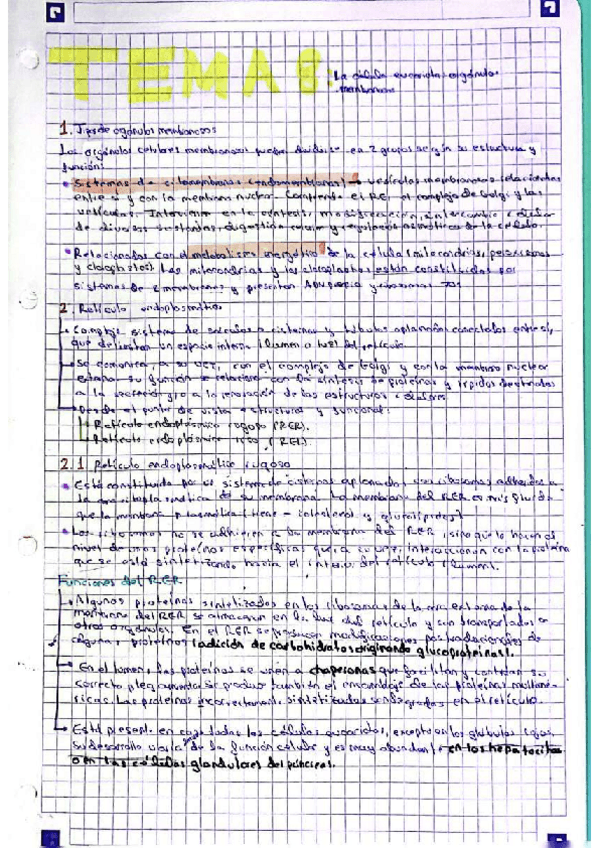 TEMA 8: La célula eucariota: orgánulos
membranosos
1. Tipos de orgánulos membranosos
Los orgánulos celulares membranosos pueden dividirse en 2 grupos según su estructura y
función:
Sistemas de endomembranas → vesículas membranosas relacionadas
entre sí y con la membrana nuclear. Comprende el RE, el complejo de Golgi y las
vesículas. Intervienen en la síntesis, modificación, intercambio celular
de diversas sustancias, digestión celular y
Relacionados con el metabolismo energético de la célula (mitocondrias, peroxisomas
y cloroplastos). Las mitocondrias y los cloroplastos están constituidos por
sistemas de 2 membranas y presentan ADN propio y ribosomas 70s
2. Retículo endoplasmático
Complejo sistema de sáculos o cisternas y túbulos aplanados conectados entre sí,
que delimitan un espacio interno (lumen o luz) del retículo.
Se comunica, a su vez, con el complejo de Golgi y con la membrana nuclear
externa. Su función se relaciona con la síntesis de proteínas y lípidos destinados
a la secreción y/o a la renovación de las estructuras celulares
Desde el punto de vista estructural y funcional:
Retículo endoplásmico rugoso (RER).
Retículo endoplásmico liso (REL).
2.1. Retículo endoplasmático rugoso
Está constituida por un sistema de cisternas aplanadas, con ribosomas adheridos a
la cara citoplasmática de su membrana. La membrana del RER es más fluida
que la membrana plasmática (tiene - colesterol y glucolípidos)
Los ribosomas no se adhieren a la membrana del RER, sino que lo hacen a
nivel de unas proteínas específicas que, a su vez, interaccionan con la proteína
que se está sintetizando hacia el interior del retículo (lumen).
Funciones del RER
Algunas proteínas sintetizadas en los ribosomas de la cara externa de la
membrana del RER se almacenan en la luz del retículo y son transportadas a
otros orgánulos. En el RER se producen modificaciones postraduccionales de
algunas proteínas (adición de carbohidratos originando glucoproteínas).
En el lumen, las proteínas se unen a chaperonas que facilitan y controlan su
correcto plegamiento. Se produce también el ensamblaje de las proteínas
Las proteínas incorrectamente sintetizadas son degradadas en el retículo.
Está presente en casi todas las células eucariotas, excepto en los glóbulos rojos,
su desarrollo varía de la función celular y es muy abundante en los hepatocitos
o en las células glandulares del páncreas.